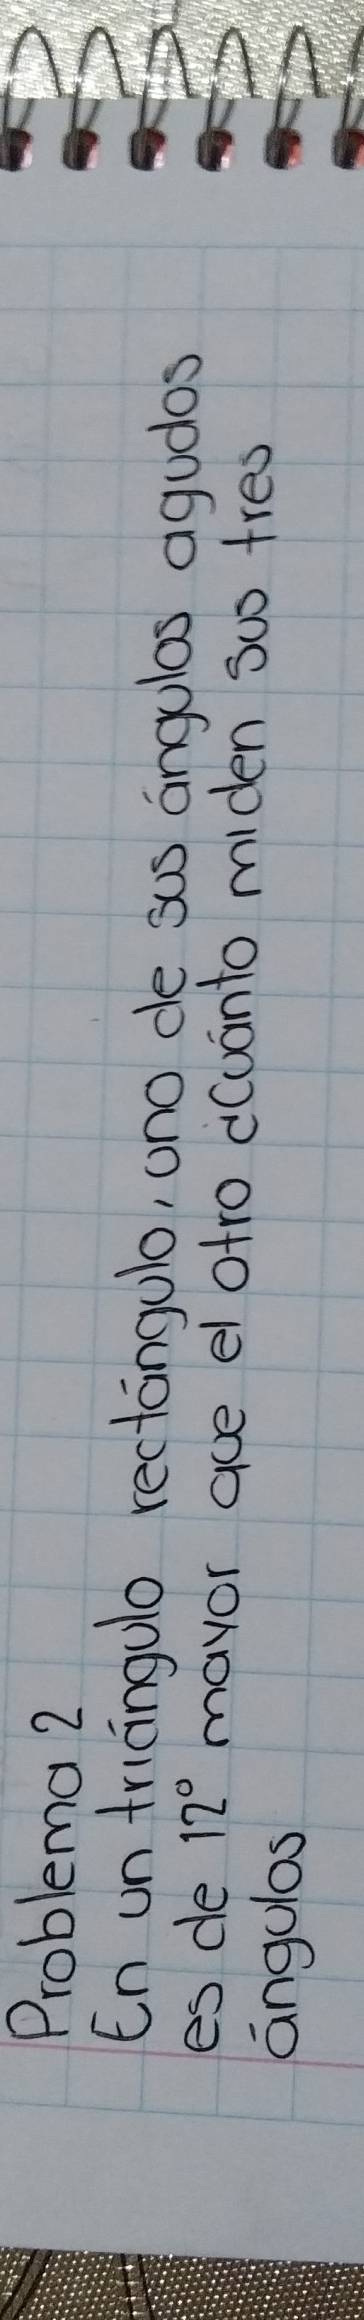 Problema 2
En un triángulo rectángulo, uno de sus ángulos agudos
es de 12° mayor que el otro ¿Cuánto miden sus tres
ángulos